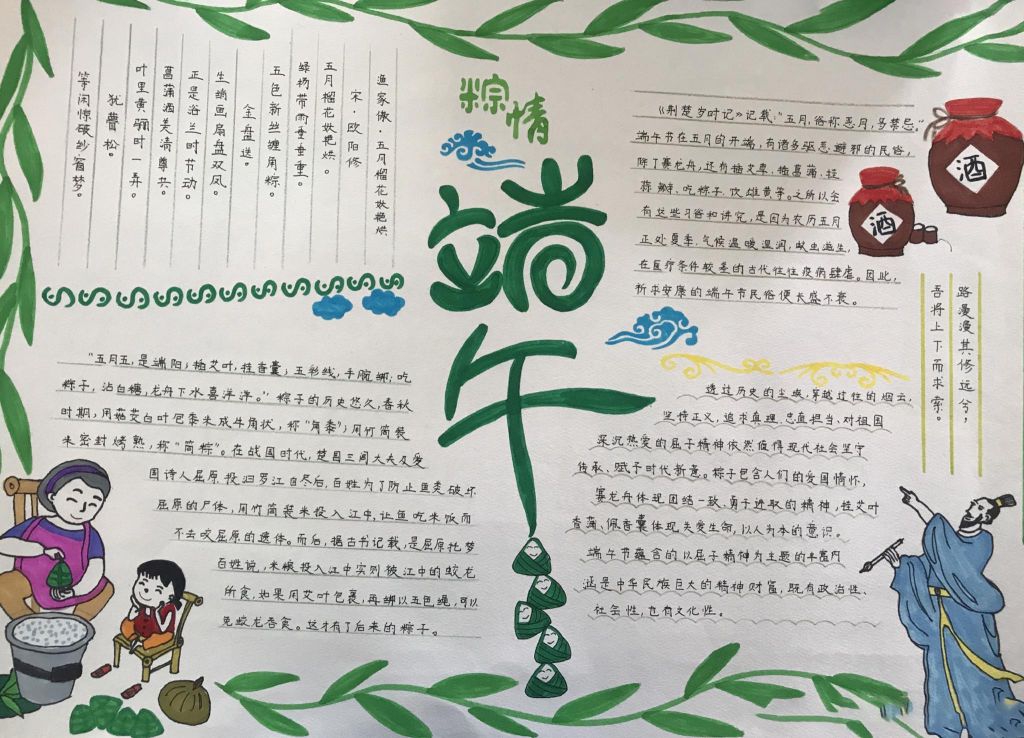 渔家傲·五月榴花妖艳烘
宋·欧阳修
五月榴花妖艳烘。
绿杨带雨垂垂重。
五色新丝缠角粽。
金盘送。
生绡画扇盘双凤。
正是浴兰时节动。
菖蒲酒美清尊共。
叶里黄骊时一弄。
犹瞢松。
等闲惊破纱窗梦。
粽情
端午
《荆楚岁时记》记载:“五月,俗称恶月,多禁忌。”
端午节在五月的开端,有诸多驱恶避邪的民俗,
除了赛龙舟,还有插艾草、插菖蒲、挂
蒜瓣、吃粽子、饮雄黄等。之所以会
有这些习俗和讲究,是因为农历五月
正处夏季,气候温暖湿润,蚊虫滋生,
在医疗条件较差的古代往往疫病肆虐。因此,
祈求安康的端午节民俗便长盛不衰。
酒
酒
路漫漫其修远兮,
吾将上下而求索。
“五月五,是端阳;插艾叶,挂香囊;五彩线,手腕绑;吃
粽子,沾白糖,龙舟下水喜洋洋。”粽子的历史悠久,春秋
时期,用菰茭白叶包黍米成牛角状,称“角黍”;用竹筒装
米密封烤熟,称“筒粽”。在战国时代,楚国三闾大夫及爱
国诗人屈原投汨罗江自尽后,百姓为了防止鱼类破坏
屈原的尸体,用竹筒装米投入江中,让鱼吃米饭而
不去咬屈原的遗体。而后,据古书记载,是屈原托梦
百姓说,米粮投入江中实则被江中的蛟龙
所食,如果用艾叶包裹,再绑以五色绳,可以
免蛟龙吞食。这才有了后来的粽子。
透过历史的尘埃,穿越过往的烟云,
坚持正义、追求真理、忠直担当、对祖国
深沉热爱的屈子精神依然值得现代社会坚守
传承、赋予时代新意。粽子包含人们的爱国情怀,
赛龙舟体现团结一致、勇于进取的精神,挂艾叶
香蒲、佩香囊体现关爱生命,以人为本的意识。
端午节蕴含的以屈子精神为主题的丰富内
涵是中华民族巨大的精神财富,既有政治性、
社会性,也有文化性。